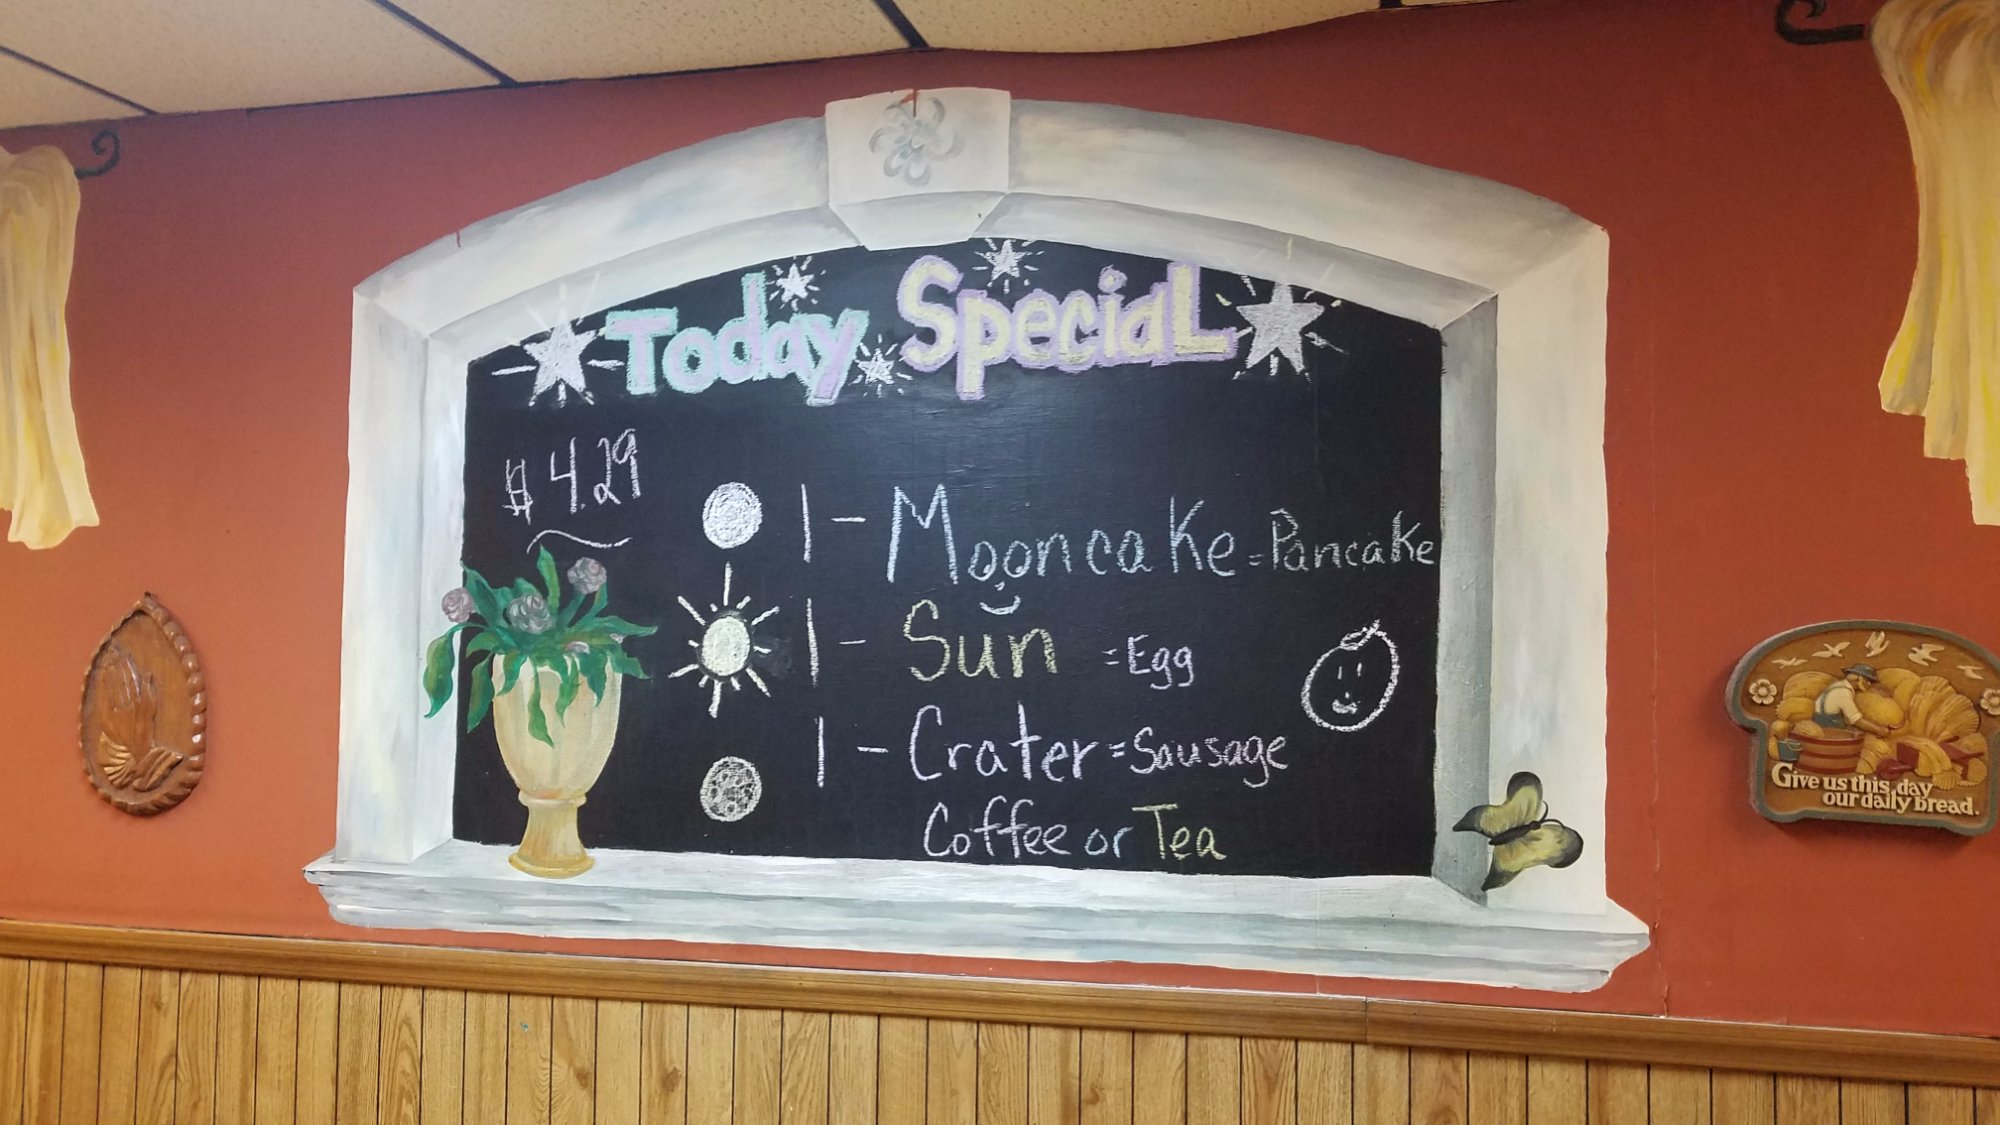 Today Special
$4.29
1 - Mooncake = Pancake
1 - Sun = Egg
1 - Crater = Sausage
Coffee or Tea
Give us this day
our daily bread.